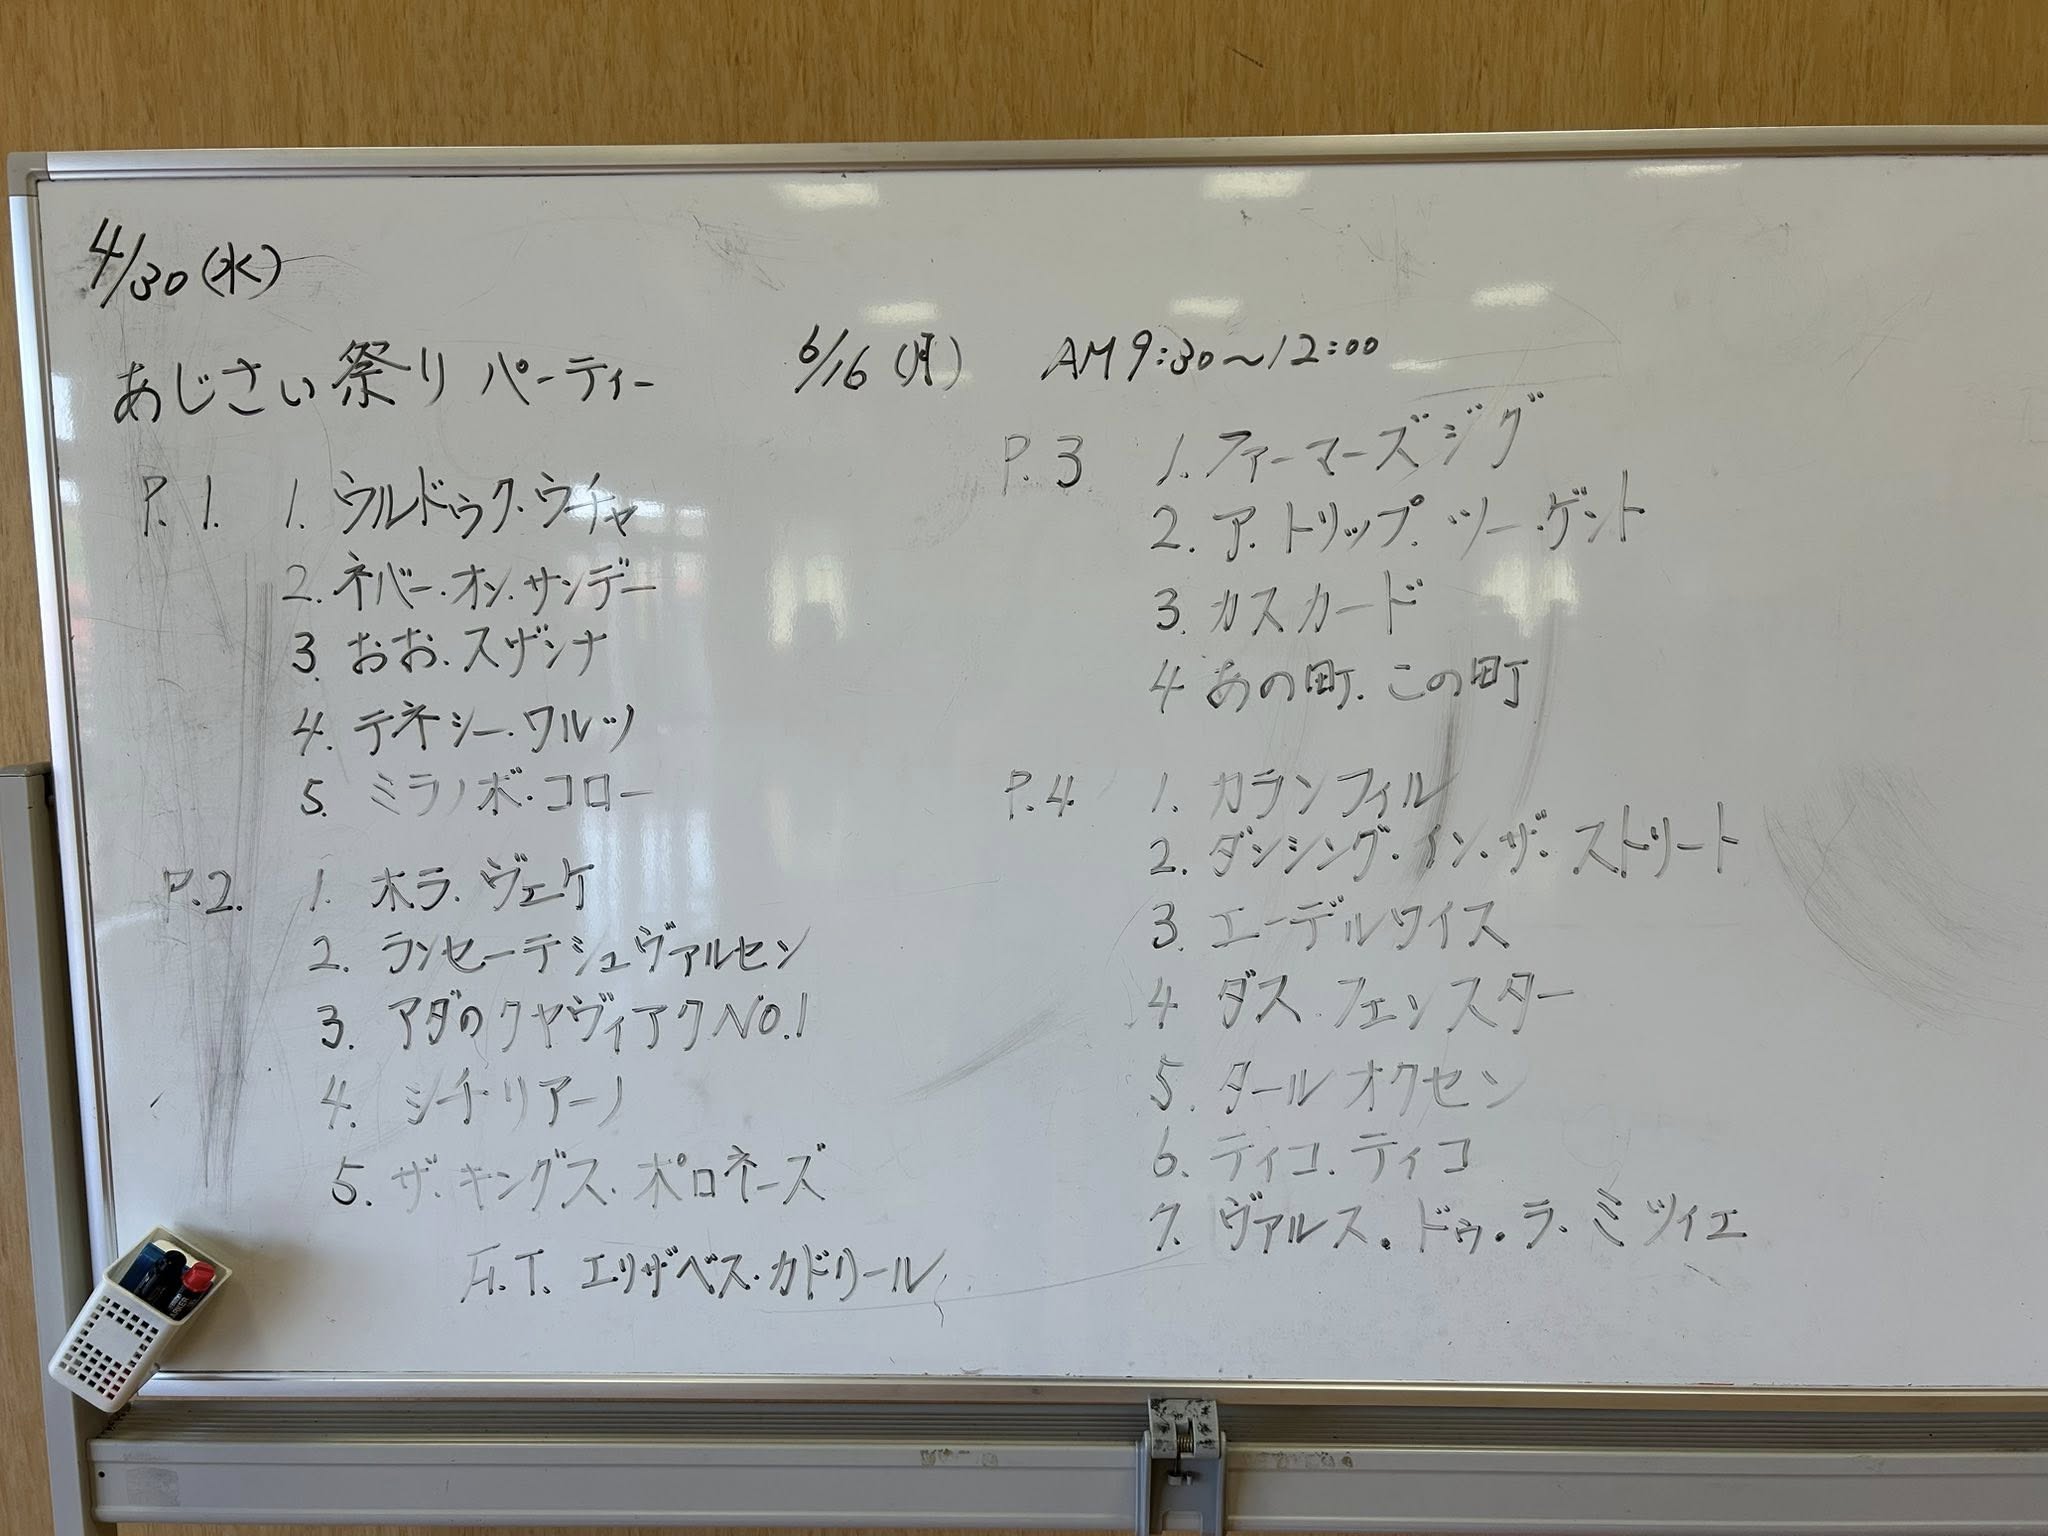 4/30(水)
あじさい祭り パーティー 6/16(月) AM9:30~12:00
P.1. 1. ウルドゥク・ウチャ
2. ネバー・オン・サンデー
3. おお・スザンナ
4. テネシー・ワルツ
5. ミラノボ・コロー
P.2. 1. ホラ・ヴェケ
2. ランセーデシュヴァルセン
3. アダのクヤヴィアクNO.1
4. シチリアーノ
5. ザ・キングス・ポロネーズ
F.T. エリザベス・カドリール
P.3 1. ファーマーズジグ
2. ア・トリップ・ツー・ゲント
3. カスカード
4 あの町・この町
P.4 1. カランフィル
2. ダンシング・イン・ザ・ストリート
3. エーデルワイス
4 ダス・フェンスター
5. タールオクセン
6. ティコ・ティコ
7. ヴァルス・ドゥ・ラ・ミツィエ